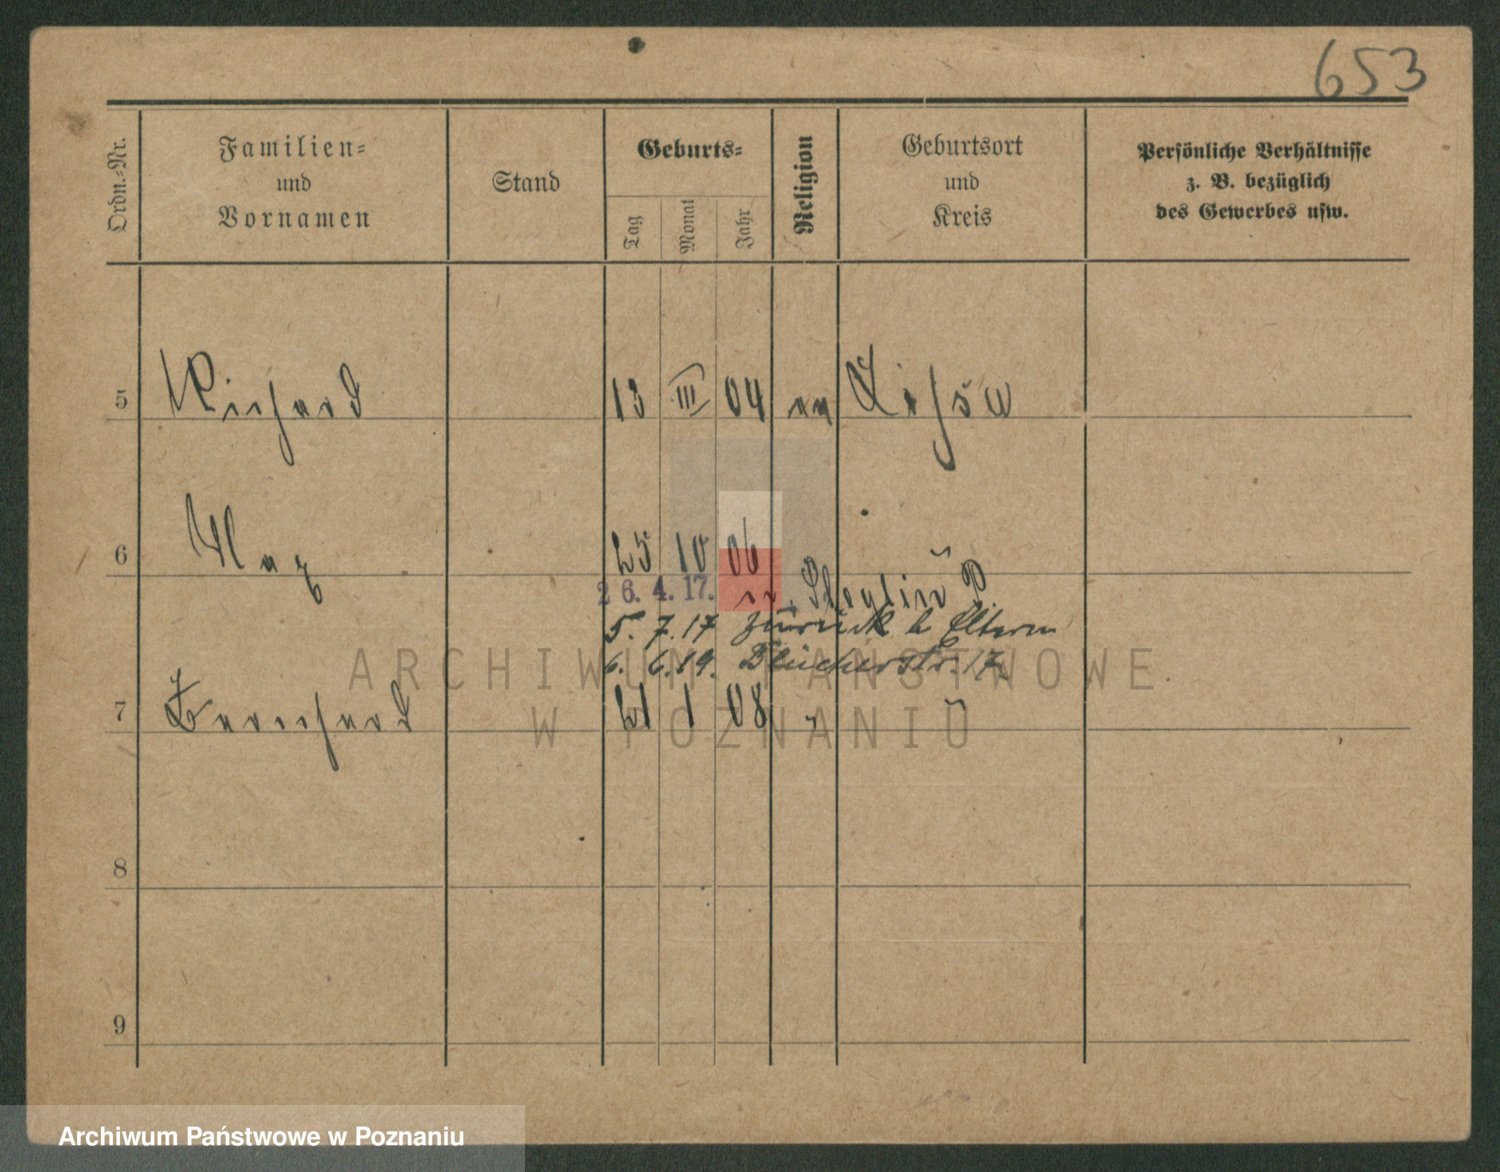 653
Ordn.-Nr.
Familien-
und
Vornamen
Stand
Geburts-
Tag
Monat
Jahr
Religion
Geburtsort
und
Kreis
Persönliche Verhältnisse
z. B. bezüglich
des Gewerbes usw.
5 Richard 13 III 04
6 Max 25 10 06
26. 4. 17.
5. 7. 17 zurück b Eltern
6. 6. 19. Blücherstr. 17.
7 Bernhard 21 1 08
8
9
ARCHIWUM PAŃSTWOWE
W POZNANIU
Archiwum Państwowe w Poznaniu